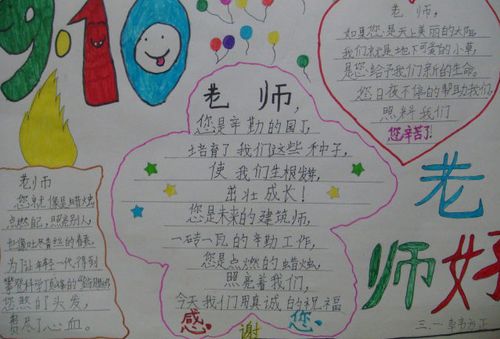 9.10
老师,
您是辛勤的园丁,
培育了我们这些种子,
使我们生根发芽,
茁壮成长!
您是未来的建筑师,
一砖一瓦的辛勤工作,
您是点燃的蜡烛,
照亮着我们,
今天我们用真诚的祝福
感谢您
老师。
如果您是天上美丽的太阳,
我们就是地下可爱的小草,
是您给予我们新的生命。
您日夜不停的帮助我们,
照料我们
您辛苦了!
老师
您就像是蜡烛
点燃自己,照亮别人,
为了让年轻一代得到
您熬白了头发,
费尽了心血。
老师好
三.一